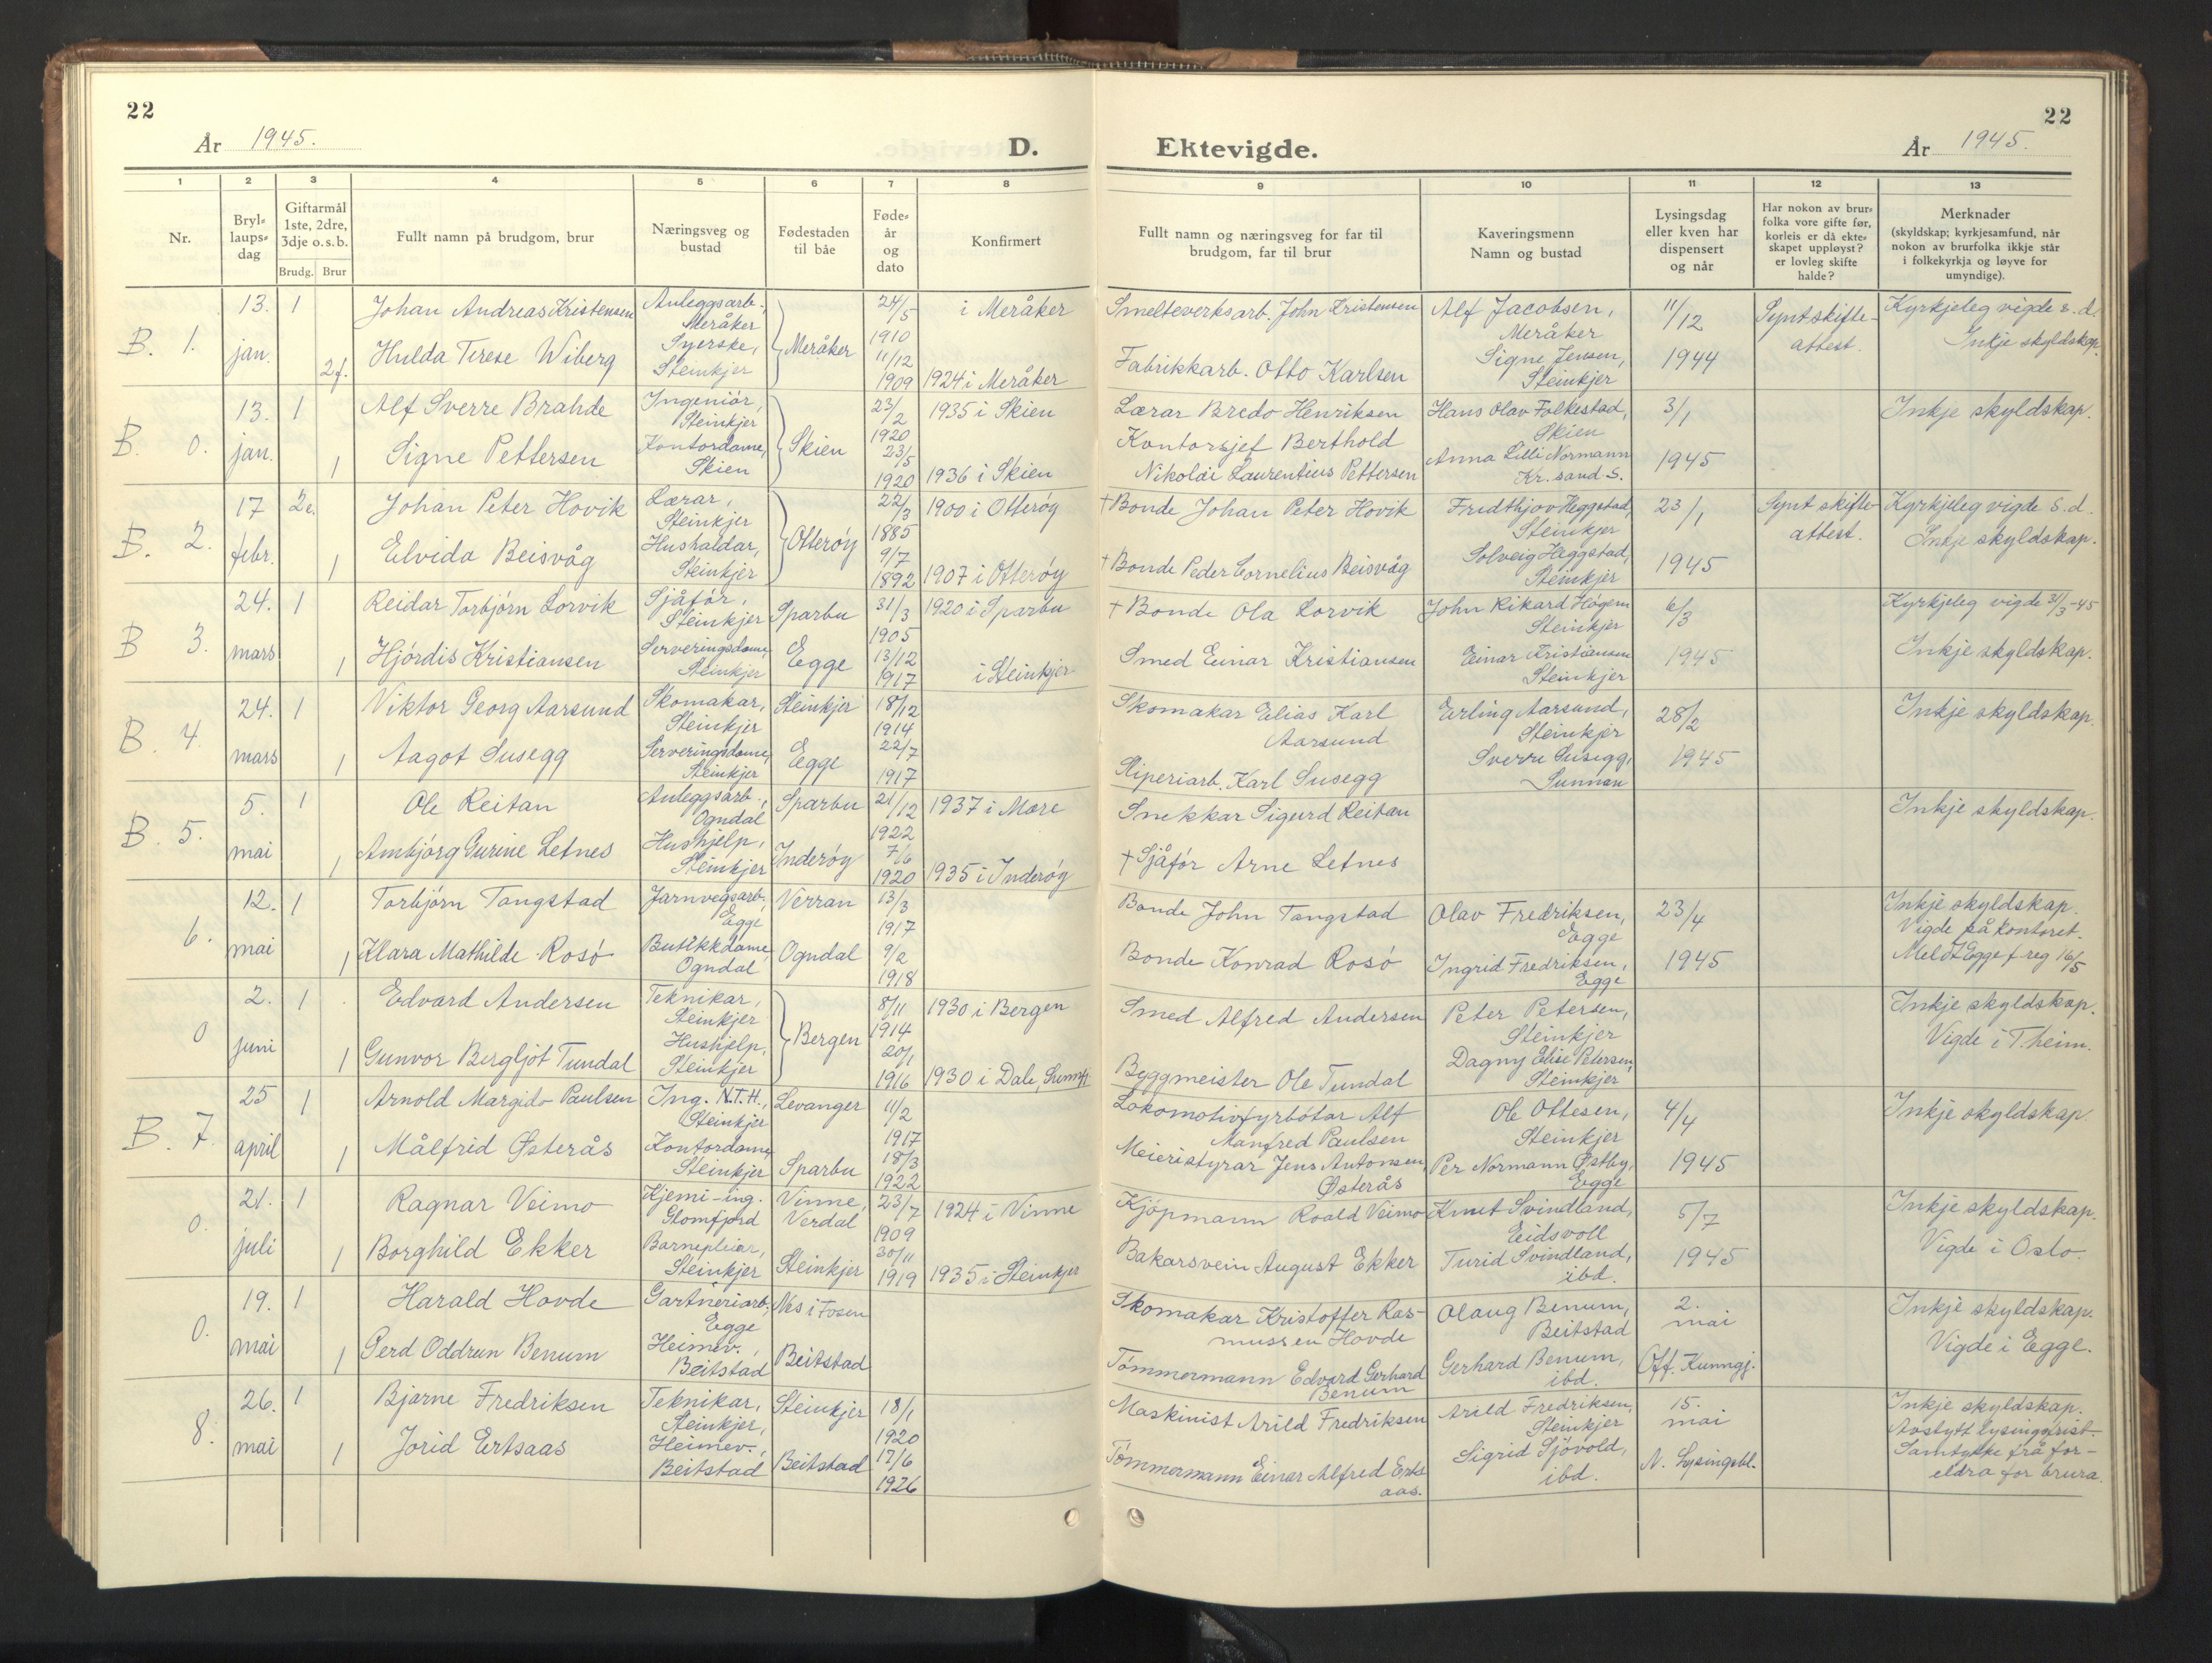 22
År 1945.
D.
1 2 3 4 5 6 7 8
Nr.
Bryl-laups-dag
Giftarmål 1ste, 2dre, 3dje o.s.b.
Brudg. Brur
Fullt namn på brudgom, brur
Næringsveg og bustad
Fødestaden til båe
Føde-år og dato
Konfirmert
B. 1. 13. jan. 1 Johan Andreas Kristensen Anleggsarb., Meråker Meråker 24/5 1910 i Meråker
2f. Hulda Terese Wiberg Syerske, Steinkjer 11/12 1909 1924 i Meråker
B. 0. 13. jan. 1 Alf Sverre Brahde Ingeniör, Steinkjer Skien 23/2 1920 1935 i Skien
1 Signe Pettersen Kontordame, Skien 23/5 1920 1936 i Skien
B. 2. 17 febr. 2e. Johan Peter Hovik Lærar, Steinkjer Otterøy 22/3 1885 1900 i Otterøy
1 Elvida Beisvåg Hushaldar, Steinkjer 9/7 1892 1907 i Otterøy
B 3. 24. mars 1 Reidar Torbjørn Lorvik Sjåför, Steinkjer Sparbu 31/3 1905 1920 i Sparbu
1 Hjördis Kristiansen Serveringsdame, Steinkjer Egge 13/12 1917 i Steinkjer
B. 4. 24. mars 1 Viktor Georg Aarsund Skomakar, Steinkjer Steinkjer 18/12 1914
1 Aagot Susegg Serveringsdame, Steinkjer Egge 22/7 1917
B. 5. 5. mai 1 Ole Reitan Anleggsarb., Ogndal Sparbu 21/12 1922 1937 i Mære
1 Ambjörg Gurine Letnes Hushjelp, Steinkjer Inderöy 7/6 1920 1935 i Inderöy
6. 12. mai 1 Torbjörn Tangstad Jarnvegsarb., Egge Verran 13/3 1917
1 Klara Mathilde Rosö Butikkdame, Ogndal Ogndal 9/2 1918
0 2. juni 1 Edvard Andersen Teknikar, Steinkjer Bergen 8/11 1914 1930 i Bergen
1 Gunvor Bergljot Tundal Hushjelp, Steinkjer 20/1 1916 1930 i Dale, Sunnfj.
B. 7. 25 april 1 Arnold Margido Paulsen Ing. N.T.H., Steinkjer Levanger 11/2 1917
1 Målfrid Østerås Kontordame, Steinkjer Sparbu 18/3 1922
0. 21. juli 1 Ragnar Veimo Kjemi-ing. Glomfjord Vinne, Verdal 23/7 1909 1924 i Vinne
1 Borghild Ekker Barnepleiar, Steinkjer Steinkjer 30/11 1919 1935 i Steinkjer
0. 19. mai 1 Harald Hovde Gartneriarb., Egge Nes i Fosen
1 Gerd Oddrun Benum Heimev., Beitstad Beitstad
8. 26. mai 1 Bjarne Fredriksen Teknikar, Steinkjer, Steinkjer 18/1 1920
1 Jorid Ertsaas Heimev., Beitstad Beitstad 17/6 1926
22
Ektevigde.
År 1945.
9 10 11 12 13
Fullt namn og næringsveg for far til brudgom, far til brur
Kaveringsmenn Namn og bustad
Lysingsdag eller kven har dispensert og når
Har nokon av brur-folka vore gifte før, korleis er då ekte-skapet uppløyst? er lovleg skifte halde?
Merknader (skyldskap; kyrkjesamfund, når nokon av brurfolka ikkje står i folkekyrkja og løyve for umyndige).
Smelteverksarb. John Kristensen Alf Jacobsen, Meråker 11/12 Synt skifte-attest. Kyrkjeleg vigde s.d.
Fabrikkarb. Otto Karlsen Signe Jensen, Steinkjer 1944 Inkje skyldskap.
Lærar Bredo Henriksen Hans Olav Folkestad, Skien 3/1 Inkje skyldskap.
Kontorsjef Berthold Nikolai Laurentius Pettersen Anna Lilli Normann Kr.sand S. 1945
+Bonde Johan Peter Hovik Fredthjov Heggstad, Steinkjer 23/1 Synt skifte-attest. Kyrkjeleg vigde s.d.
+Bonde Peder Cornelius Beisvåg Solveig Heggstad, Steinkjer 1945 Inkje skyldskap.
+ Bonde Ola Lorvik John Rikard Högem Steinkjer 6/3 Kyrkjeleg vigde 31/3-45
Smed Einar Kristiansen Einar Kristiansen Steinkjer 1945 Inkje skyldskap.
Skomakar Elias Karl Aarsund Erling Aarsund, Steinkjer 28/2 Inkje skyldskap.
Sliperiarb. Karl Susegg Sverre Susegg, Sunnan 1945
Snekkar Sigurd Reitan Inkje skyldskap.
+ Sjåför Arne Letnes
Bonde John Tangstad Olav Fredriksen, Egge 23/4 Inkje skyldskap. Vigde på kontoret.
Bonde Konrad Rosö Ingrid Fredriksen, Egge 1945 Meldt Egge f-reg 16/5
Smed Alfred Andersen Peter Petersen, Steinkjer Inkje skyldskap.
Byggmeister Ole Tundal Dagny Elise Petersen, Steinkjer Vigde i T.heim.
Lokomotivfyrbötar Alf Manfred Paulsen Ole Ottesen, Steinkjer 4/4 Inkje skyldskap.
Meieristyrar Jens Antonsen Østerås Per Normann Østby, Egge 1945
Kjöpmann Roald Veimo Knut Svindland, Eidsvoll 5/7 Inkje skyldskap.
Bakarsvein August Ekker Turid Svindland, ibd. 1945 Vigde i Oslo.
Skomakar Kristoffer Ras-mussen Hovde Olaug Benum, Beitstad 2. mai Inkje skyldskap.
Tömmermann Edvard Gerhard Benum Gerhard Benum, ibd. Off. Kunngj. Vigde i Egge.
Maskinist Arild Fredriksen Arild Fredriksen, Steinkjer 15. mai Inkje skyldskap. Avstytt lysingsfrist.
Tömmermann Einar Alfred Erts aas. Sigrid Sjövold, ibd. N. Lysingsbl. Samtykke frå for-eldra for brura.